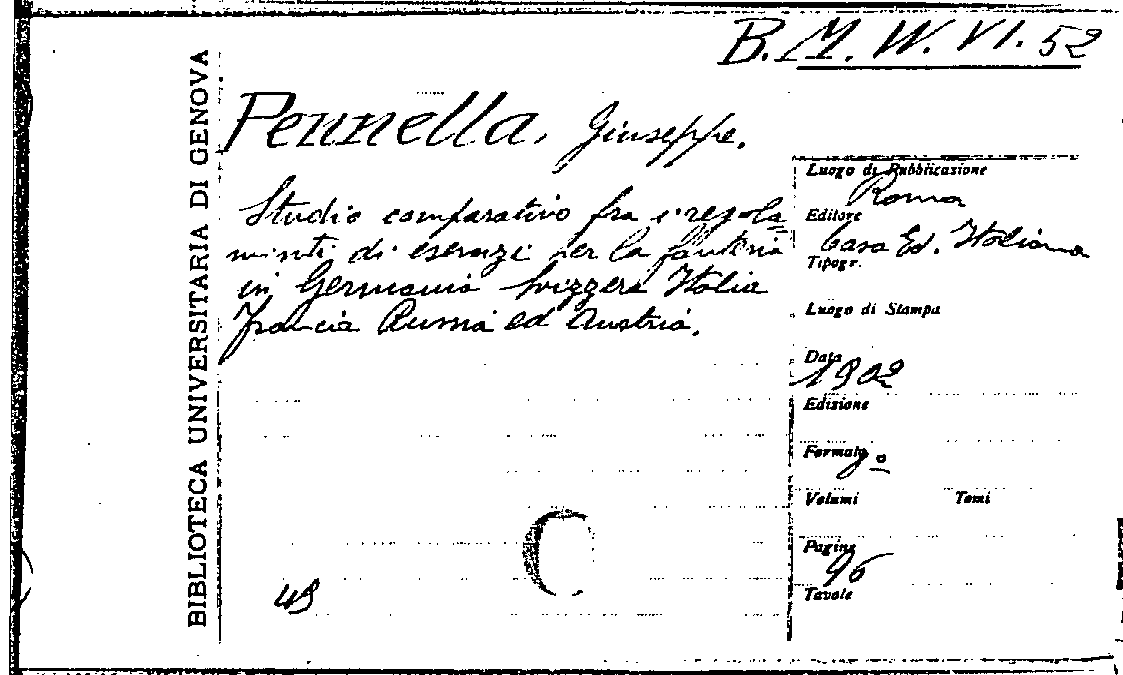 B.M.W.VI.52
BIBLIOTECA UNIVERSITARIA DI GENOVA
Pennella, Giuseppe.
Studio comparativo fra i regola-
minti di esercizi per la fanteria
in Germania Svizzera Italia
Francia Russia ed Austria.
Luogo di Pubblicazione
Roma
Editore
Casa Ed. Italiana
Tipogr.
Luogo di Stampa
Data
1902
Edizione
Formato
Volumi Tomi
Pagine
96
Tavole
C
49